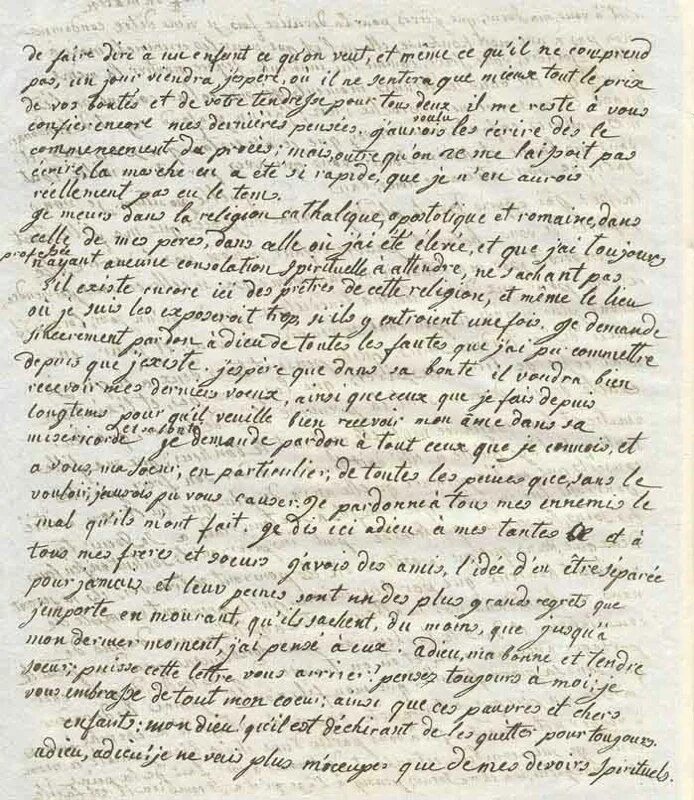 de faire dire à un enfant ce qu'on veut, et même ce qu'il ne comprend
pas, un jour viendra, j'espère, où il ne sentira que mieux tout le prix
de vos bontés et de votre tendresse pour tous deux il me reste à vous
confier encore mes dernières pensées. j'aurois voulu les écrire dès le
commencement du procès; mais, outre qu'on ne me laissoit pas
écrire, la marche en a été si rapide, que je n'en aurois
réellement pas eu le tems.
je meurs dans la religion catholique, apostolique et romaine, dans
celle de mes pères, dans celle où j'ai été élevée, et que j'ai toujours
professée
n'ayant aucune consolation spirituelle à attendre, ne sachant pas
s'il existe encore ici des prêtres de cette religion, et même le lieu
où je suis les exposeroit trop, si ils y entroient une fois. je demande
sincerement pardon à dieu de toutes les fautes que j'ai pu commettre
depuis que j'existe. j'espère que dans sa bonté il voudra bien
recevoir mes derniers voeux, ainsi que ceux que je fais depuis
longtems pour qu'il veuille bien recevoir mon âme dans sa
misericorde et sa bonté je demande pardon à tout ceux que je connois, et
a vous, ma soeur, en particulier, de toutes les peines que, sans le
vouloir, j'aurois pu vous causer. je pardonne à tous mes ennemis le
mal qu'ils m'ont fait. je dis ici adieu à mes tantes et à
tous mes frères et soeurs j'avois des amis, l'idée d'en être séparée
pour jamais et leur peines sont un des plus grands regrets que
j'emporte en mourant, qu'ils sachent, du moins, que jusqu'à
mon dernier moment, j'ai pensé à eux. adieu, ma bonne et tendre
soeur; puisse cette lettre vous arriver! pensez toujours à moi; je
vous embrasse de tout mon coeur; ainsi que ces pauvres et chers
enfants; mon dieu! qu'il est déchirant de les quitter pour toujours.
adieu, adieu! je ne vais plus m'occuper que de mes devoirs spirituels.